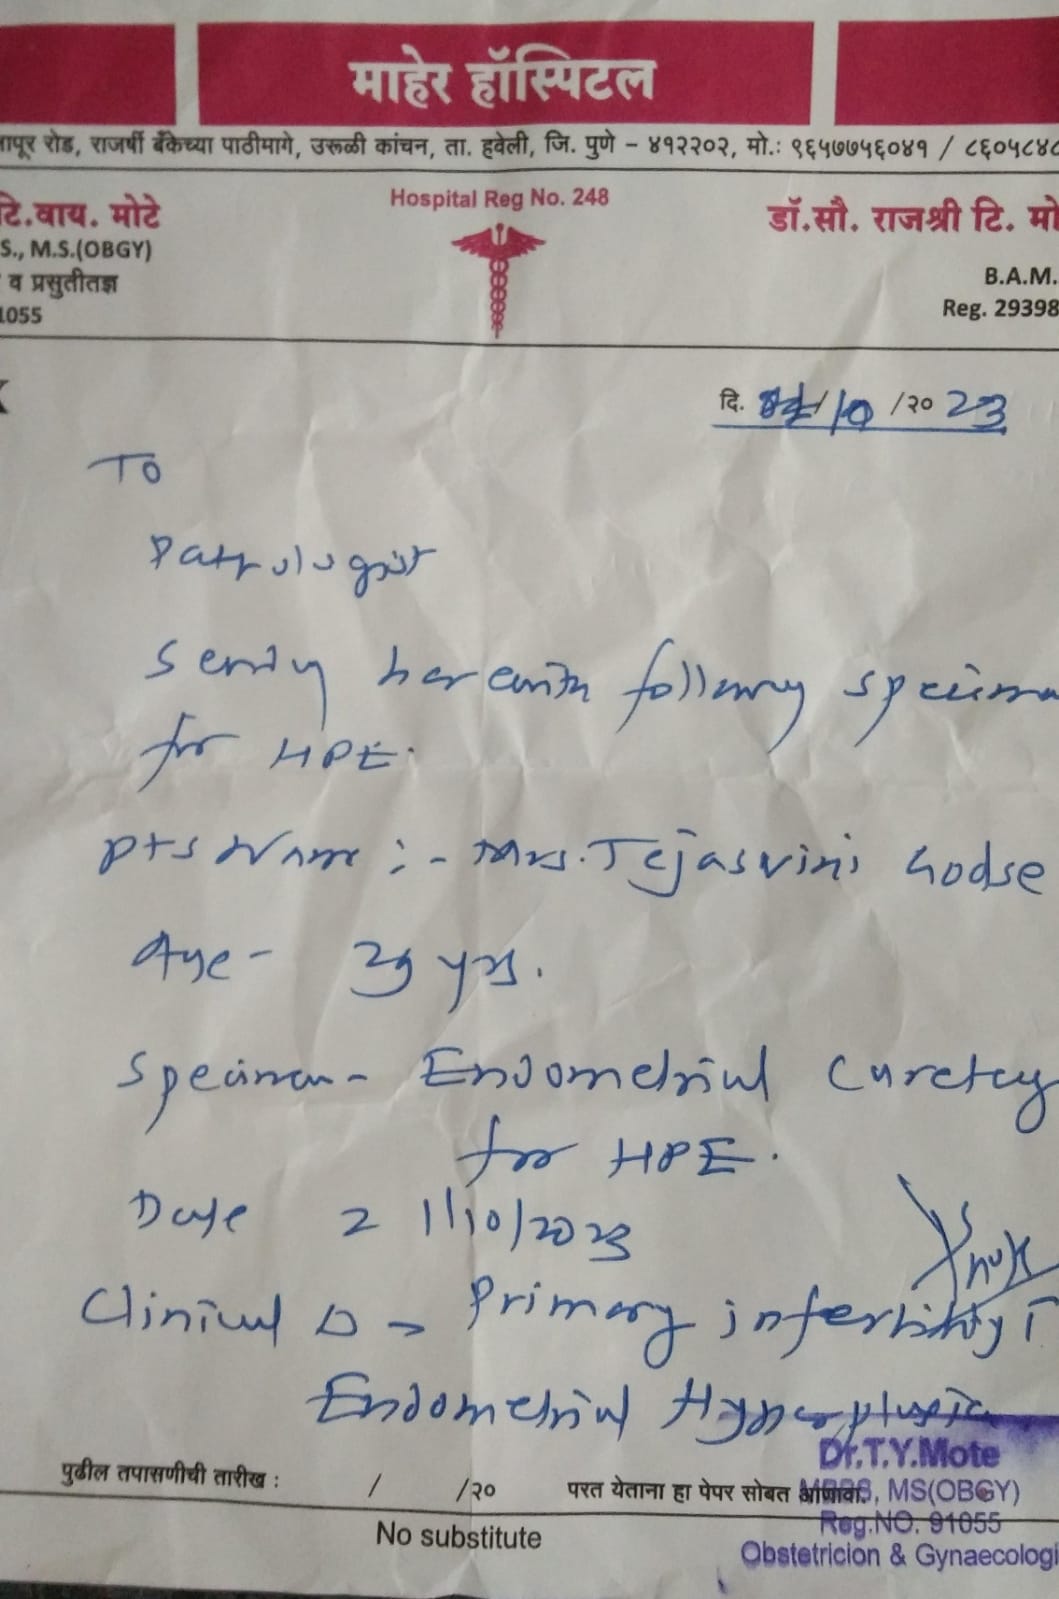 माहेर हॉस्पिटल
तापूर रोड, राजर्षी बँकेच्या पाठीमागे, उरूळी कांचन, ता. हवेली, जि. पुणे - ४१२२०२, मो.: ९६५७७५६०४१ / ८६०५८४८
Hospital Reg No. 248
टि.वाय. मोटे
S., M.S.(OBGY)
व प्रसुतीतज्ञ
1055
डॉ.सौ. राजश्री टि. मो
B.A.M.
Reg. 29398
दि. /10 /२० 23
To
Pathologist
Sending herewith following specimen
for HPE.
Pts Name :- Mrs. Tejasvini Godse
Age - 29 yrs.
Specimen - Endometrial Curettage
for HPE.
Date 21/10/2023
Clinical D → Primary infertility c̄
Endometrial Hyperplasia
पुढील तपासणीची तारीख : / /२० परत येताना हा पेपर सोबत आणावा.
No substitute
Dr.T.Y.Mote
MBBS, MS(OBGY)
Reg.NO. 91055
Obstetricion & Gynaecologi